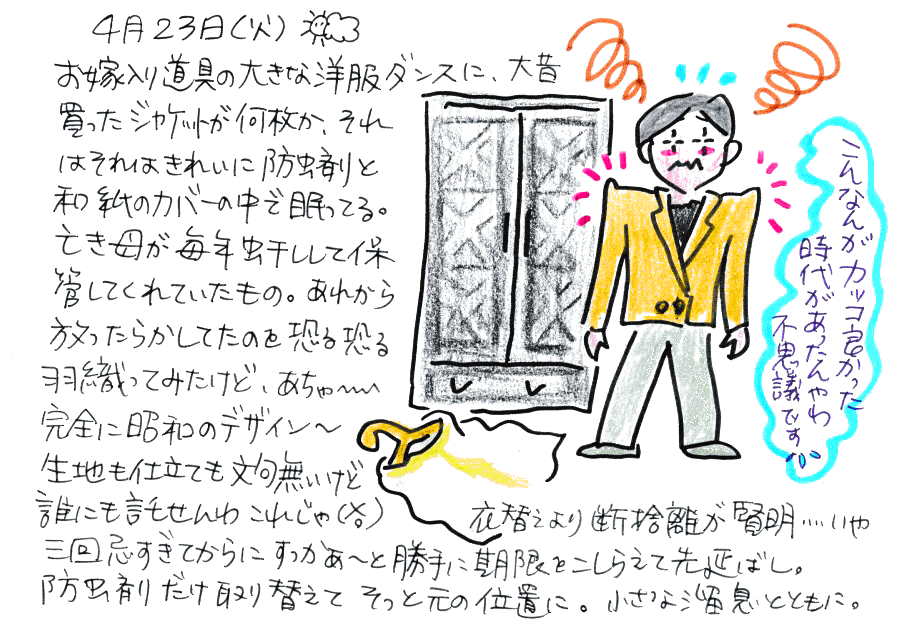 4月23日(火)
お嫁入り道具の大きな洋服ダンスに、大昔
買ったジャケットが何枚か、それ
はそれはきれいに防虫剤と
和紙のカバーの中で眠ってる。
亡き母が毎年虫干しして保
管してくれていたもの。あれから
放ったらかしてたのを恐る恐る
羽織ってみたけど、あちゃ〜
完全に昭和のデザイン〜
生地も仕立ても文句無いけど
誰にも託せんわこれじゃ(答)
衣替えより断捨離が賢明……いや
三回忌すぎてからにすっかぁ〜と勝手に期限をこしらえて先延ばし。
防虫剤だけ取り替えてそっと元の位置に。小さな溜息とともに。
こんなんがカッコ良かった
時代があったんやわ
不思議ですが